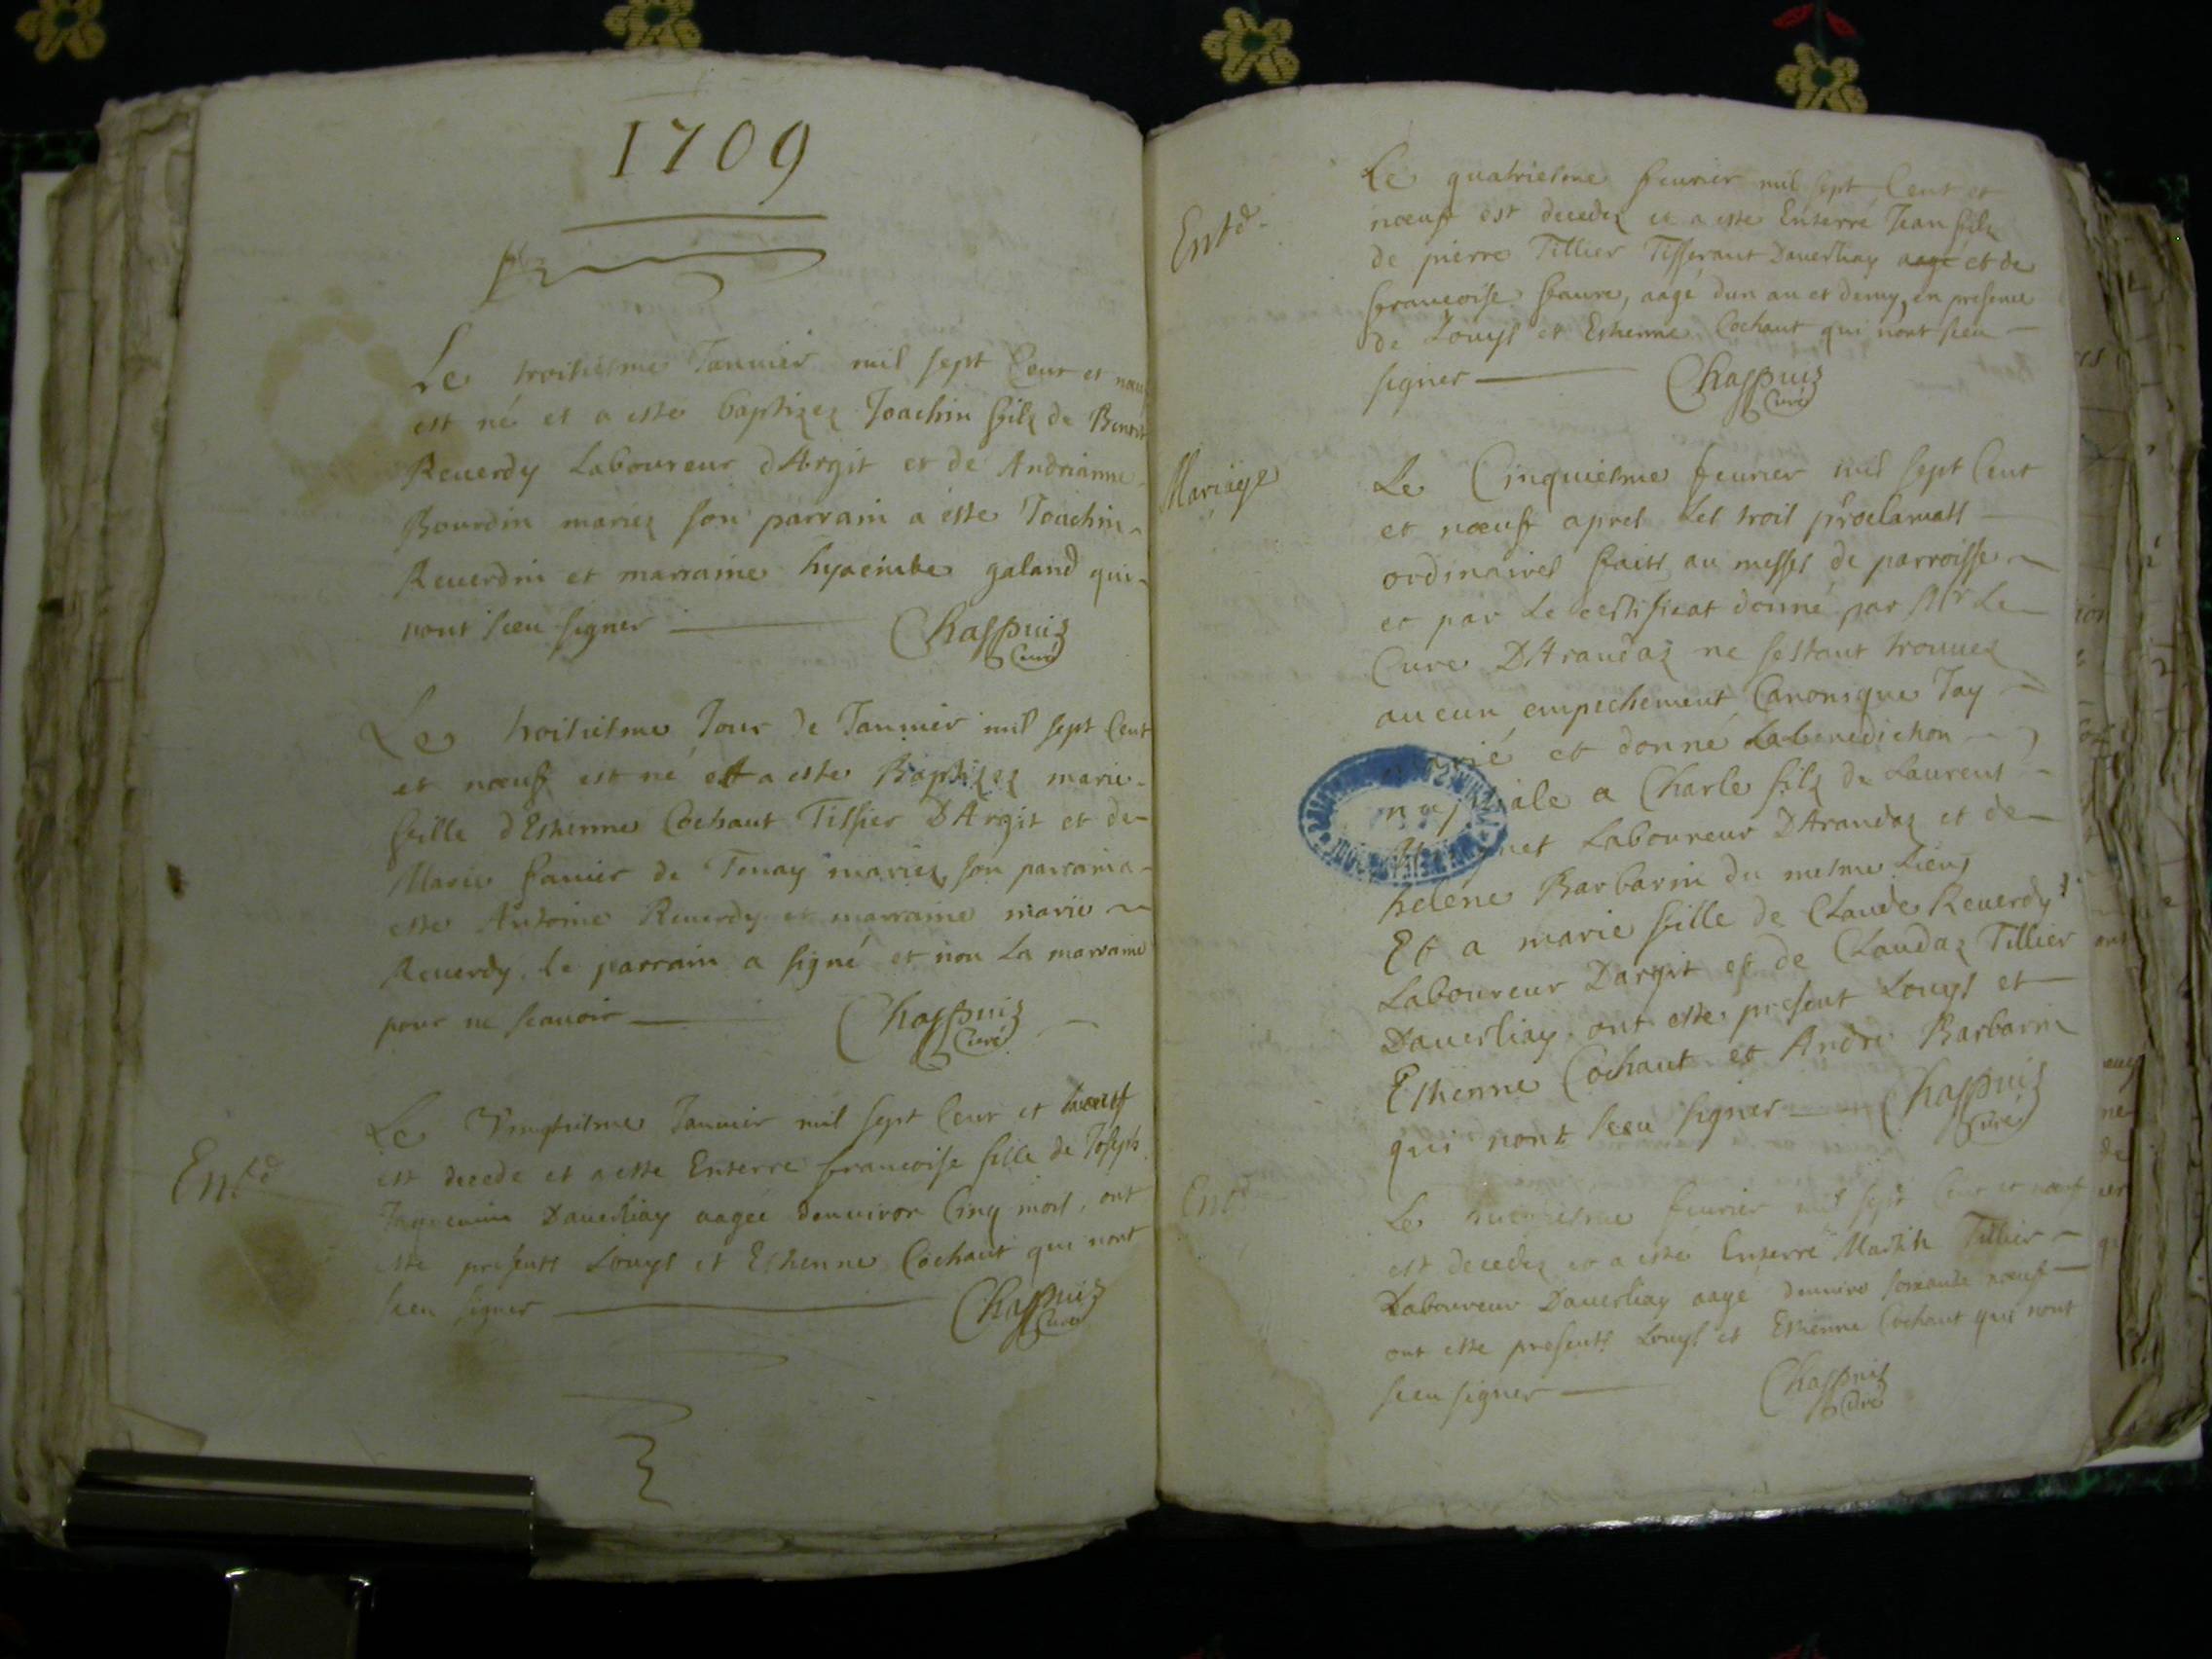 1709
Le troisiesme Januier mil sept Cent et nœuf
est né et a esté baptizez Joachin filz de Benoit
Reuerdy Laboureur dArgit et de Andrianne
Bourdin mariez son parrain a este Joachin
Reuerdin et marraine hyacinthe galand qui
nont sceu signer Chappuiz
Curé
Le troisiesme Jour de Januier mil sept Cent
et nœuf est né et a este Baptizez marie
fille dEstienne Cochaut Tissier DArgit et de
Marie fauier de Tenay mariez, son parrain a
este Antoine Reuerdy et marraine marie
Reuerdy. le parrain a signé et non La marraine
pour ne scauoir Chappuiz
Curé
Le Januier mil sept Cent et nœuf
Ent.d
est decede et a este Enterre francoise fille de Joseph
Dauerliay aagée denuiron Cinq mois, ont
este presents Louys et Estienne Cochaut qui nont
sceu signer Chappuiz
Curé
Le quatriesme feurier mil sept Cent et
Ent.d
nœuf est decedez et a este Enterré Jean filz
de pierre Tillier Tisserant Dauerliay aagé et de
francoise faure, aagé dun an et demy, en presence
de Louys et Estienne Cochaut qui nont sceu
signer Chappuiz
Curé
Mariage
Le Cinquiesme feurier mil sept Cent
et nœuf apres Les trois proclamats
ordinaires faits au messes de parroisse
et par Le certificat donné par Mr Le
Cure DArandaz ne sestant trouuez
aucun empechement Canonique Jay
marié et donné La benediction
nuptiale a Charle filz de Laurent
Laboureur DArandaz et de
heléne Barbarin du mesme Lieu,
Et a marie fille de Claude Reuerdy
Laboureur Dargit et de Claudaz Tillier
Dauerliay. ont este present Louys et
Estienne Cochaut et André Barbarin
qui nont sceu signer Chappuiz
Curé
Ent.d
Le feurier mil sept Cent et nœuf
est decedez et a esté Enterré Martin Tillier
Laboureur Dauerliay aagé denuiro soixante nœuf
ont este presents Louys et Estienne Cochaut qui nont
sceu signer Chappuiz
Curé